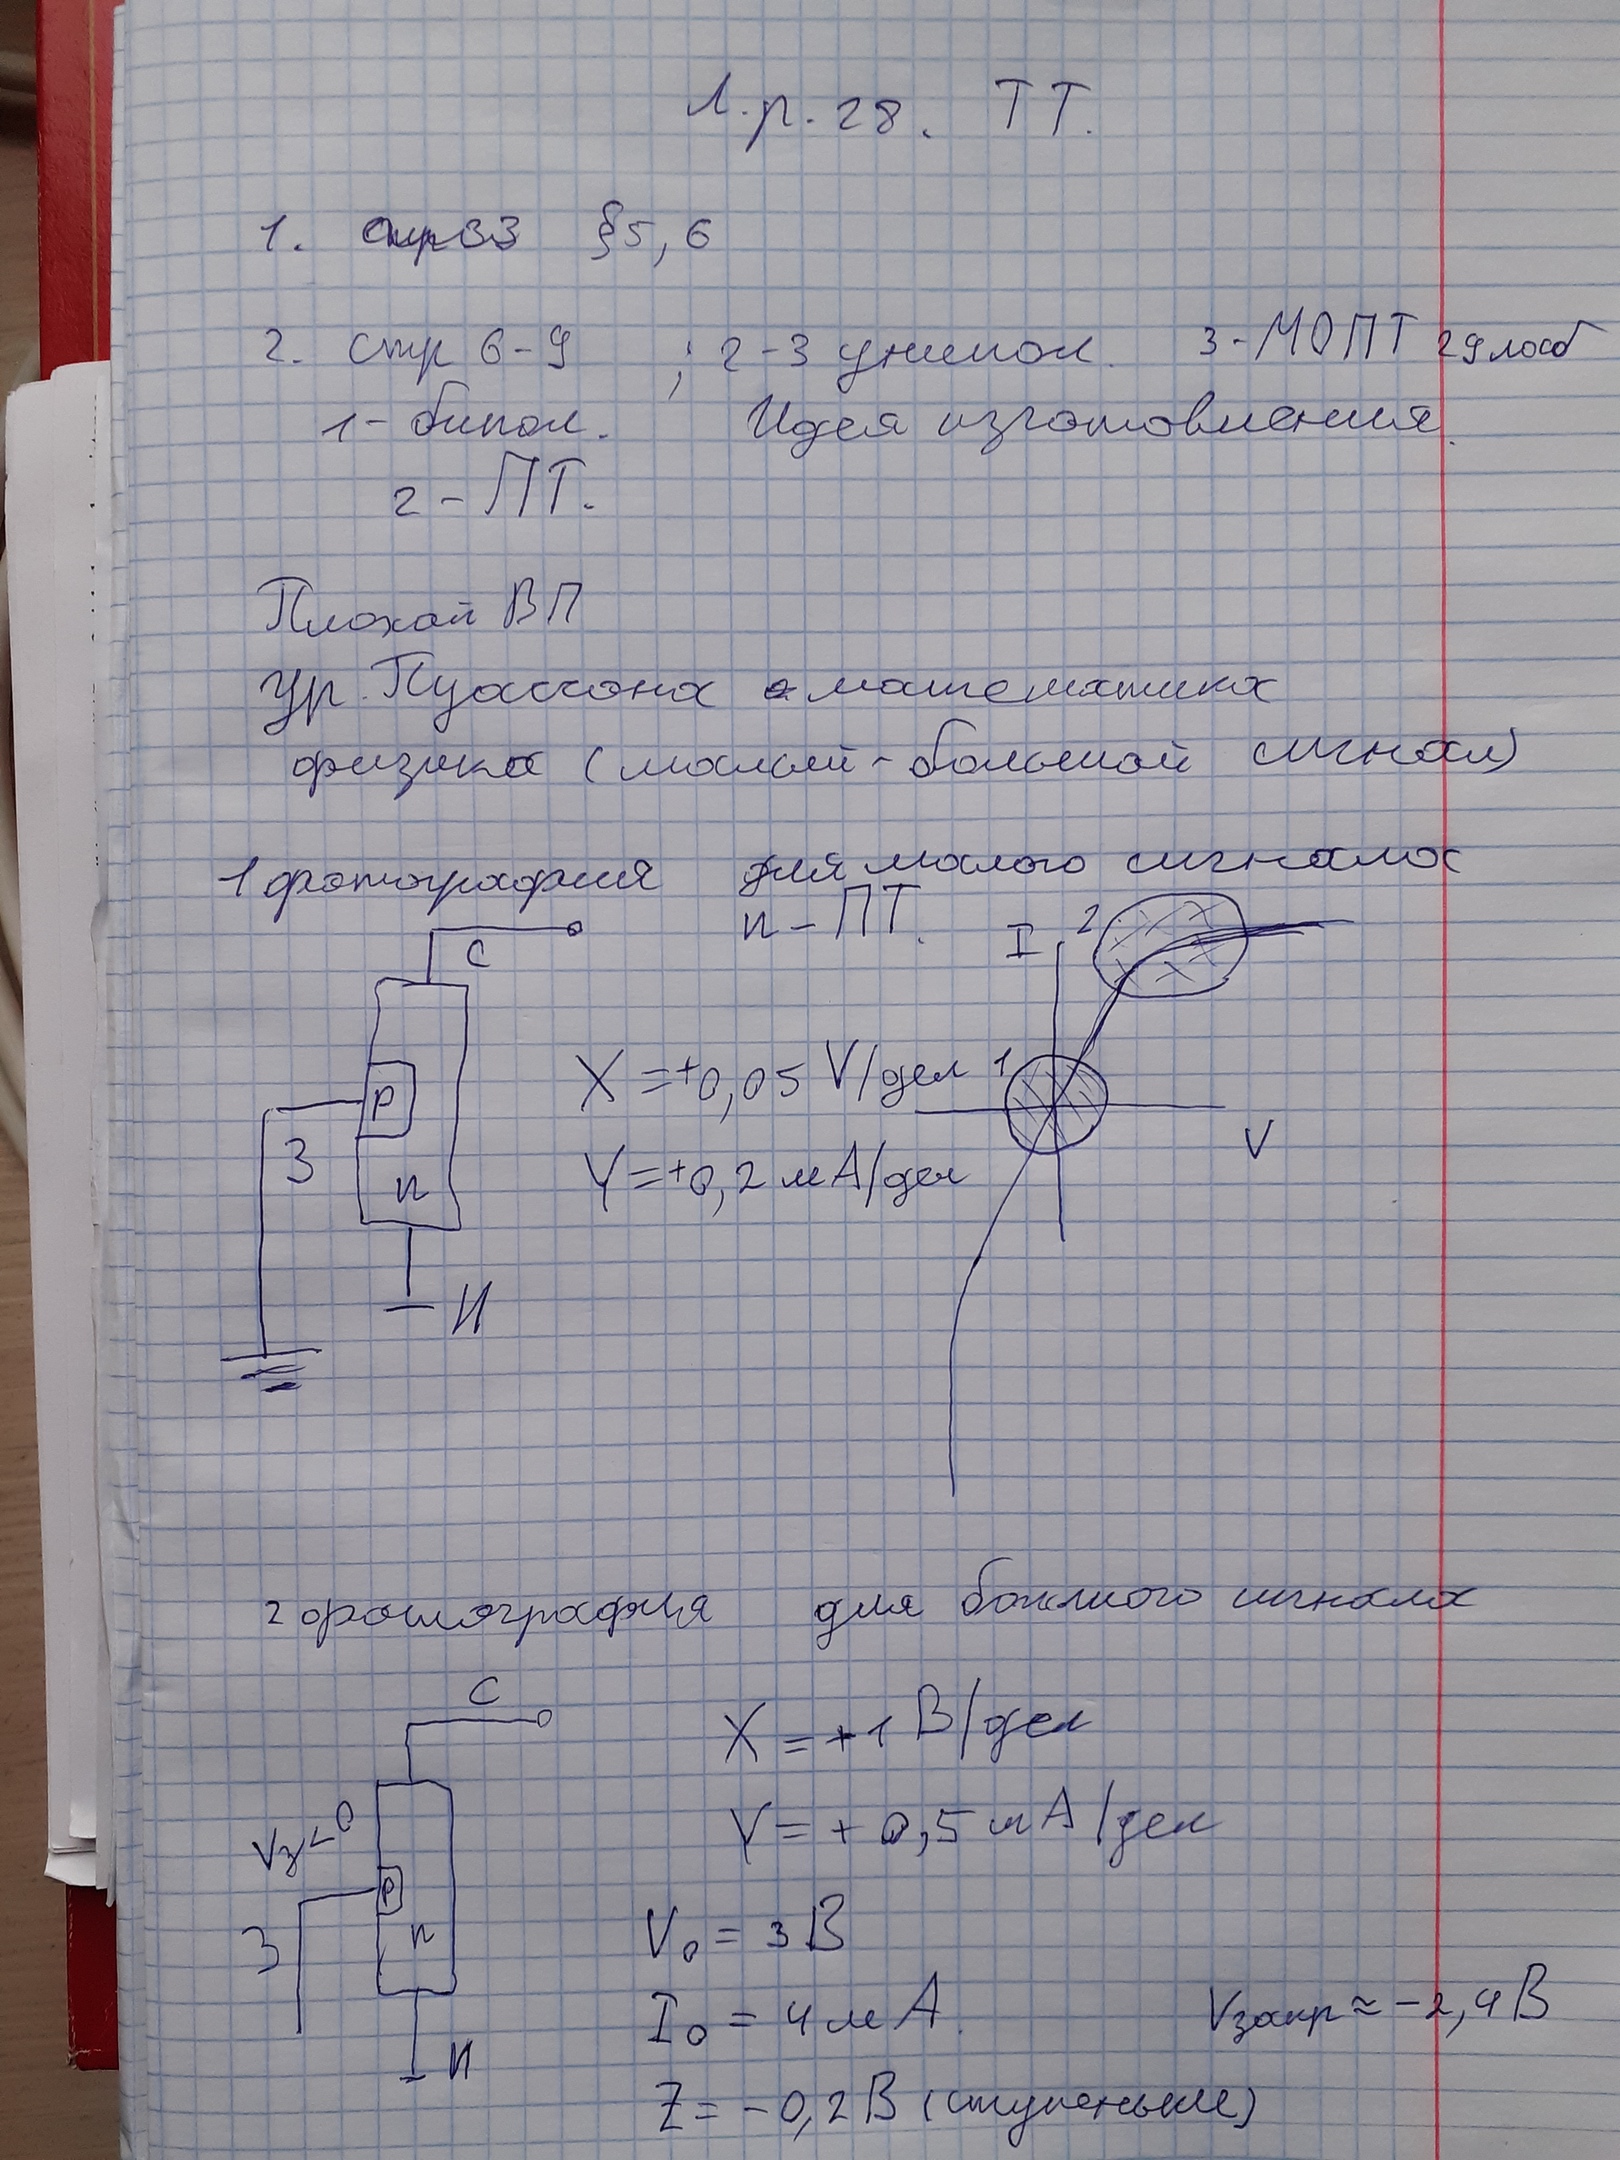 Л.р. 28. ТТ.
1. стр 33 §5, 6
2. стр 6-9 ; 2-3 унипол. 3-МОПТ 29
1- бипол. Идея изготовления.
2-ПТ.
Плохой ВП
Ур. Пуассона математика
физика (малый-большой сигнал)
1 фотография для малого сигнала
n-ПТ.
I 2
С
X=+0,05 V/дел 1
P
V
З
Y=+0,2 мА/дел
n
И
2 фотография для большого сигнала
С
X=+1 В/дел
Vз<0
Y=+0,5 мА/дел
P
З
n
V0=3В
I0=4мА. Vзапр≈-2,4В
И
Z=-0,2В (ступеньки)